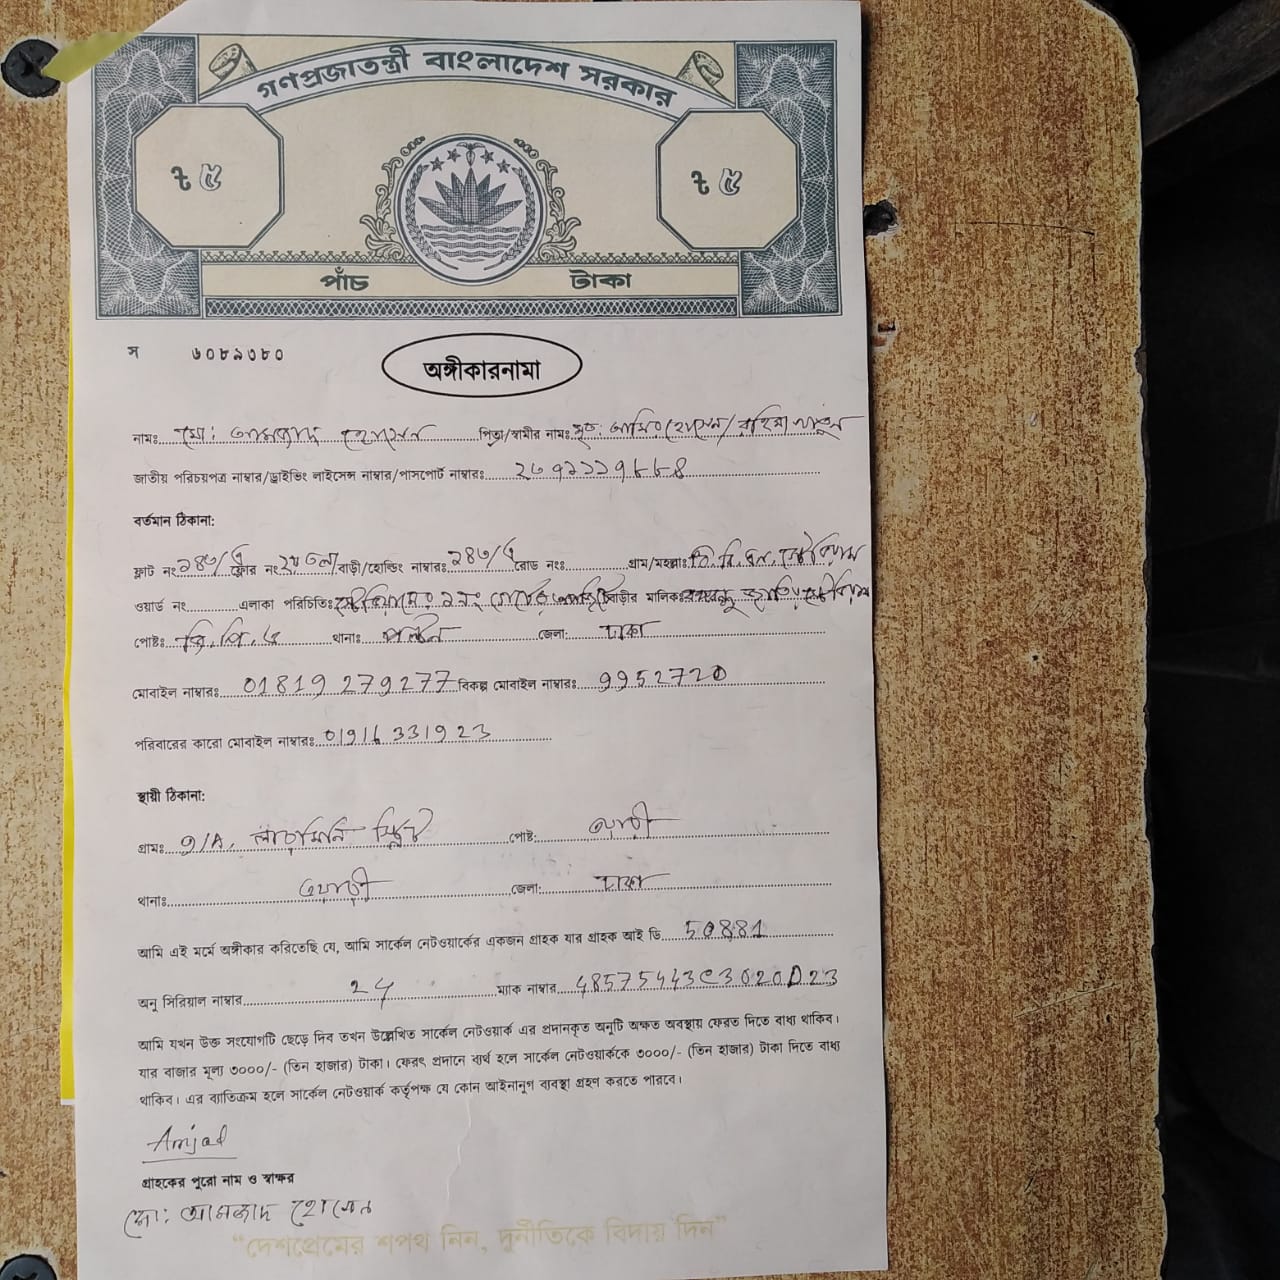 গণপ্রজাতন্ত্রী বাংলাদেশ সরকার
৳ ৫ ৳ ৫
পাঁচ টাকা
স ৬০৮৯৩৮০
অঙ্গীকারনামা
নামঃ মো: আমজাদ হোসেন পিতা/স্বামীর নামঃ মৃত:
জাতীয় পরিচয়পত্র নাম্বার/ড্রাইভিং লাইসেন্স নাম্বার/পাসপোর্ট নাম্বারঃ
বর্তমান ঠিকানা:
ফ্লাট নং ফ্লোর নং ২য় তলা বাড়ী/হোল্ডিং নাম্বারঃ রোড নংঃ গ্রাম/মহল্লাঃ
ওয়ার্ড নং এলাকা পরিচিতিঃ বাড়ীর মালিকঃ
পোষ্টঃ থানাঃ পল্টন জেলা: ঢাকা
মোবাইল নাম্বারঃ 01819 279277 বিকল্প মোবাইল নাম্বারঃ 9952720
পরিবারের কারো মোবাইল নাম্বারঃ 01916 331923
স্থায়ী ঠিকানা:
গ্রামঃ পোষ্ট: ওয়ারী
থানাঃ ওয়ারী জেলা: ঢাকা
আমি এই মর্মে অঙ্গীকার করিতেছি যে, আমি সার্কেল নেটওয়ার্কের একজন গ্রাহক যার গ্রাহক আই ডি 50881
অনু সিরিয়াল নাম্বার ম্যাক নাম্বার 48575443C3020D23
আমি যখন উক্ত সংযোগটি ছেড়ে দিব তখন উল্লেখিত সার্কেল নেটওয়ার্ক এর প্রদানকৃত অনুটি অক্ষত অবস্থায় ফেরত দিতে বাধ্য থাকিব।
যার বাজার মূল্য ৩০০০/- (তিন হাজার) টাকা। ফেরৎ প্রদানে ব্যর্থ হলে সার্কেল নেটওয়ার্ককে ৩০০০/- (তিন হাজার) টাকা দিতে বাধ্য
থাকিব। এর ব্যতিক্রম হলে সার্কেল নেটওয়ার্ক কর্তৃপক্ষ যে কোন আইনানুগ ব্যবস্থা গ্রহণ করতে পারবে।
Amjad
গ্রাহকের পুরো নাম ও স্বাক্ষর
মো: আমজাদ হোসেন
"দেশপ্রেমের শপথ নিন, দুর্নীতিকে বিদায় দিন"